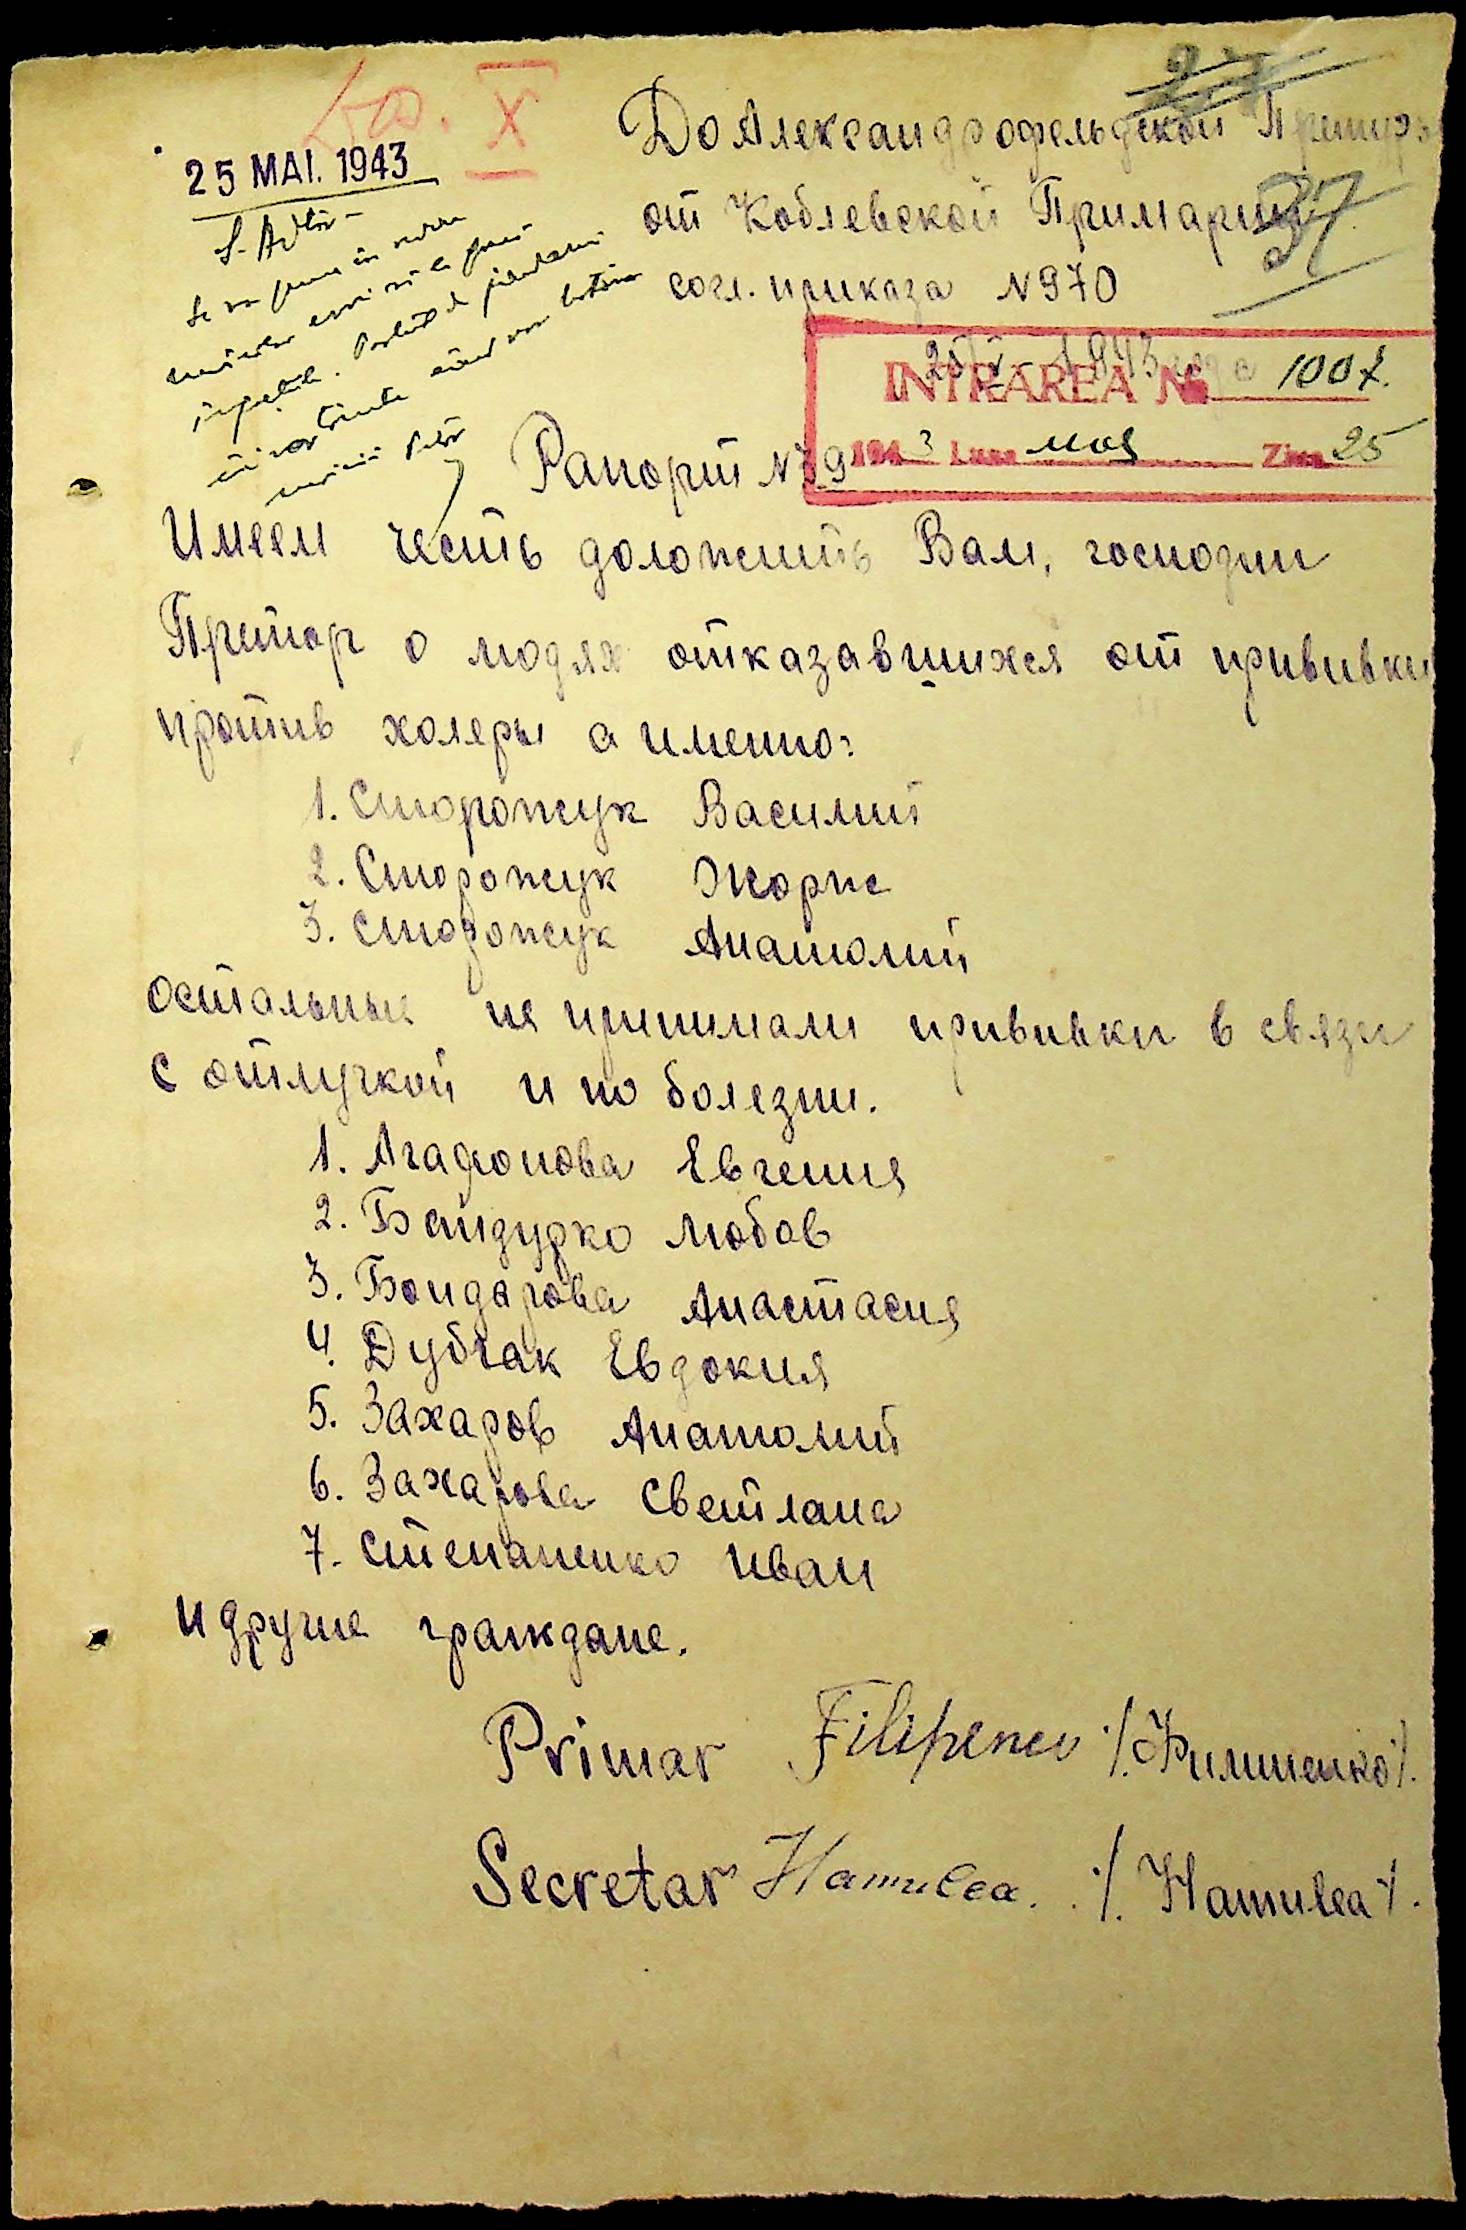 27
До Александрофельдской Претуры
X
25 MAI. 1943
от Коблевской Примарии
37
согл. приказа N 970
25/V 1943 года
INTRAREA № 1007.
1943 Luna мая Ziua 25
Рапорт N 79
Имеем честь доложить Вам, господин
Претор о людях отказавшихся от прививки
против холеры а именно:
1. Сторожук Василий
2. Сторожук Жорже
3. Сторожук Анатолий
остальные не принимали прививки в связи
с отлучкой и по болезни.
1. Агафонова Евгения
2. Байдурко Любов
3. Бондарова Анастасия
4. Дубчак Евдокия
5. Захаров Анатолий
6. Захарова Светлана
7. Степаненко Иван
и другие граждане.
Primar Filipenco ./.Филипенко./.
Secretar Hamulea. ./. Hamulea ./.